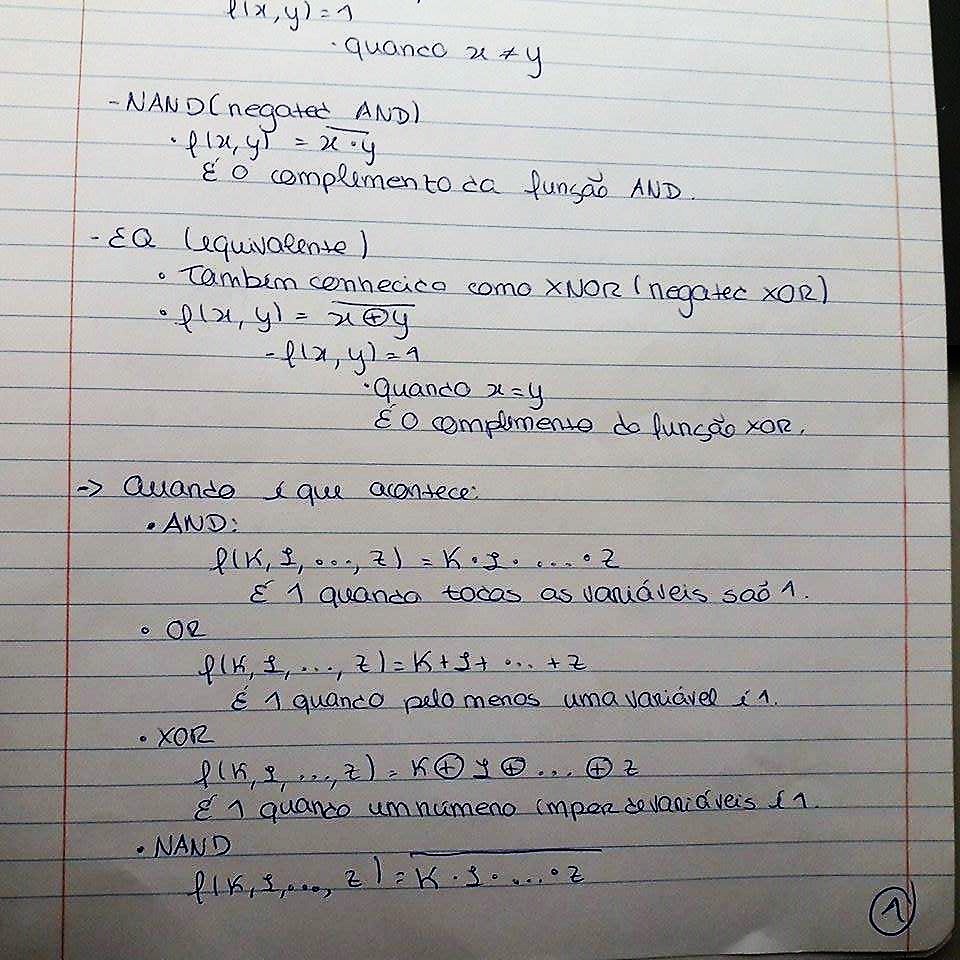 f(x, y) = 1
· quando x ≠ y
- NAND (negated AND)
· f(x, y) = \overline{x · y}
É o complemento da função AND.
- EQ (equivalente)
• Também conhecido como XNOR (negated XOR)
• f(x, y) = \overline{x ⊕ y}
- f(x, y) = 1
· quando x = y
É o complemento do função XOR.
-> Quando é que acontece:
• AND:
f(K, J, ..., Z) = K · J · ... · Z
É 1 quando todas as variáveis são 1.
• OR
f(K, J, ..., Z) = K + J + ... + Z
É 1 quando pelo menos uma variável é 1.
• XOR
f(K, J, ..., Z) = K ⊕ J ⊕ ... ⊕ Z
É 1 quando um número impar de variáveis é 1.
• NAND
f(K, J, ..., Z) = \overline{K · J · ... · Z}
1